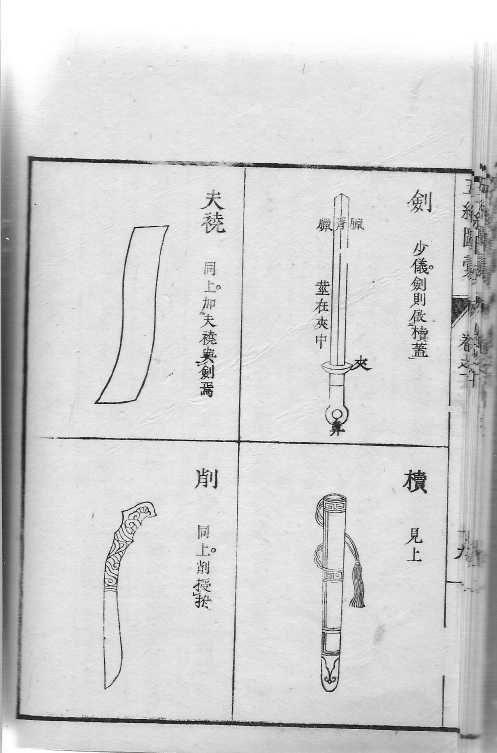 劍
少儀。劍則啟櫝蓋
臘脊臘
莖在夾中
夾
櫝
見上
夫襓
同上。加夫襓與劍焉
削
同上。削授拊
五經圖彙